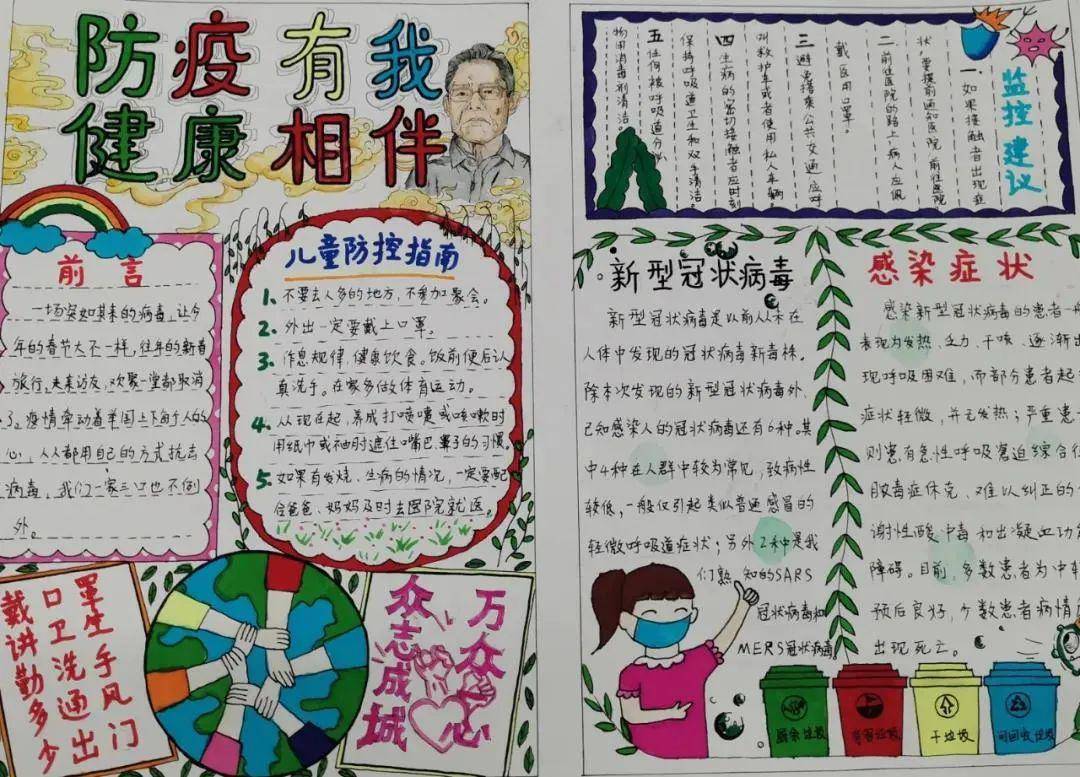 防疫有我
健康相伴
前言
一场突如其来的病毒,让今
年的春节大不一样,往年的新春
旅行,走亲访友,欢聚一堂都取消
了。疫情牵动着举国上下每个人的
心,人人都用自己的方式抗击
病毒,我们一家三口也不例
外。
儿童防控指南
1、不要去人多的地方,不参加聚会。
2、外出一定要戴上口罩。
3、作息规律,健康饮食。饭前便后认
真洗手。在家多做体育运动。
4、从现在起,养成打喷嚏或咳嗽时
用纸巾或袖肘遮住嘴巴、鼻子的习惯。
5、如果有发烧、生病的情况,一定要配
合爸爸、妈妈及时去医院就医。
戴口罩
讲卫生
勤洗手
多通风
少出门
万众一心
众志成城
监控建议
一如果接触者出现症
状要提前通知医院前往医院
二前往医院的路上病人应佩
戴医用口罩。
三避免搭乘公共交通应呼
叫救护车或者使用私人车辆。
四生病的密切接触者应时刻
保持呼吸道卫生和双手清洁。
五任何被呼吸道分泌
物用消毒剂清洁
新型冠状病毒
新型冠状病毒是以前从未在
人体中发现的冠状病毒新毒株。
除本次发现的新型冠状病毒外,
已知感染人的冠状病毒还有6种。其
中4种在人群中较为常见,致病性
较低,一般仅引起类似普通感冒的
轻微呼吸道症状;另外2种是我
们熟知的SARS
冠状病毒和
MERS冠状病毒。
感染症状
感染新型冠状病毒的患者一般
表现为发热、乏力、干咳、逐渐出
现呼吸困难,而部分患者起
症状轻微,并无发热;严重患
则患有急性呼吸窘迫综合
脓毒症休克、难以纠正的
谢性酸中毒和出凝血功
障碍。目前,多数患者为中轻
预后良好,少数患者病情
出现死亡。
厨余垃圾
有害垃圾
干垃圾
可回收垃圾